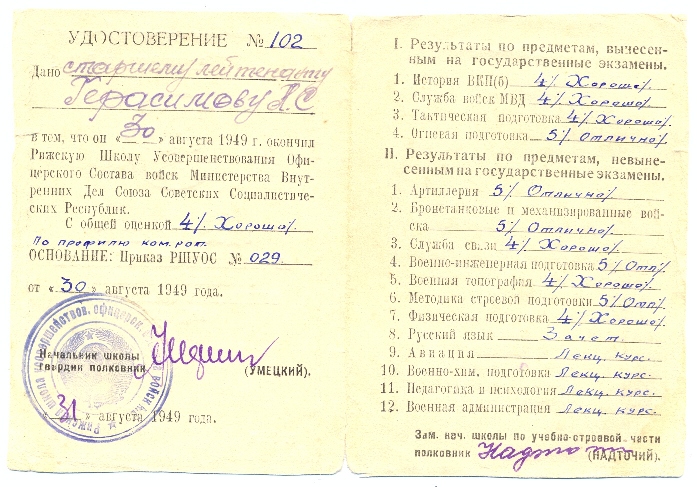 УДОСТОВЕРЕНИЕ № 102
Дано старшему лейтенанту
Герасимову А С
в том, что он «30» августа 1949 г. окончил
Рижскую Школу Усовершенствования Офи-
церского Состава войск Министерства Внут-
ренних Дел Союза Советских Социалистиче-
ских Республик.
С общей оценкой 4/ Хорошо/.
По профилю ком. рот.
ОСНОВАНИЕ: Приказ РШУОС № 029.
от «30» августа 1949 года.
Начальник школы
гвардии полковник
(УМЕЦКИЙ).
«31» августа 1949 года.
I. Результаты по предметам, вынесен-
ным на государственные экзамены.
1. История ВКП(б) 4/ Хорошо/
2. Служба войск МВД 4/ Хорошо/
3. Тактическая подготовка 4/ Хорошо/
4. Огневая подготовка 5/ Отлично/
II. Результаты по предметам, невыне-
сенным на государственные экзамены.
1. Артиллерия 5/ Отлично/
2. Бронетанковые и механизированные вой-
ска 5/ Отлично/
3. Служба связи 4/ Хорошо/
4. Военно-инженерная подготовка 5/ Отл/
5. Военная топография 4/ Хорошо/
6. Методика строевой подготовки 5/ Отл/
7. Физическая подготовка 4/ Хорошо/
8. Русский язык Зачет.
9. Авиация Лекц. курс.
10. Военно-хим. подготовка Лекц. курс.
11. Педагогика и психология Лекц. курс.
12. Военная администрация Лекц. курс.
Зам. нач. школы по учебно-строевой части
полковник (НАДТОЧИЙ)